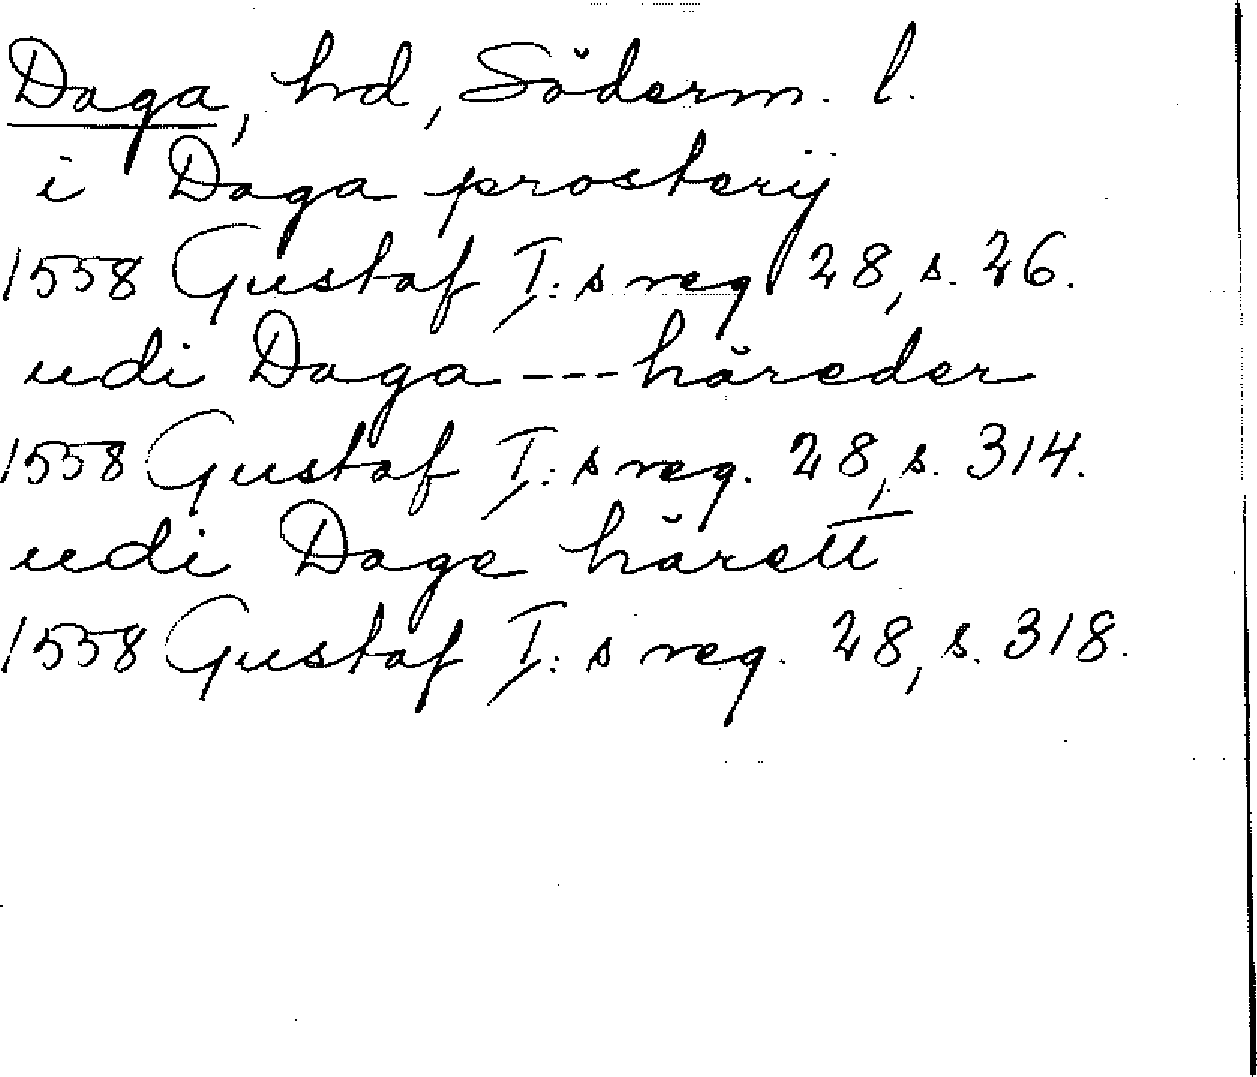 Daga, hd, Söderm. l.
i Daga prosterij
1558 Gustaf I:s reg 28, s. 26.
udi Daga --- häreder
1558 Gustaf I:s reg. 28, s. 314.
udi Dage härett
1558 Gustaf I:s reg. 28, s. 318.